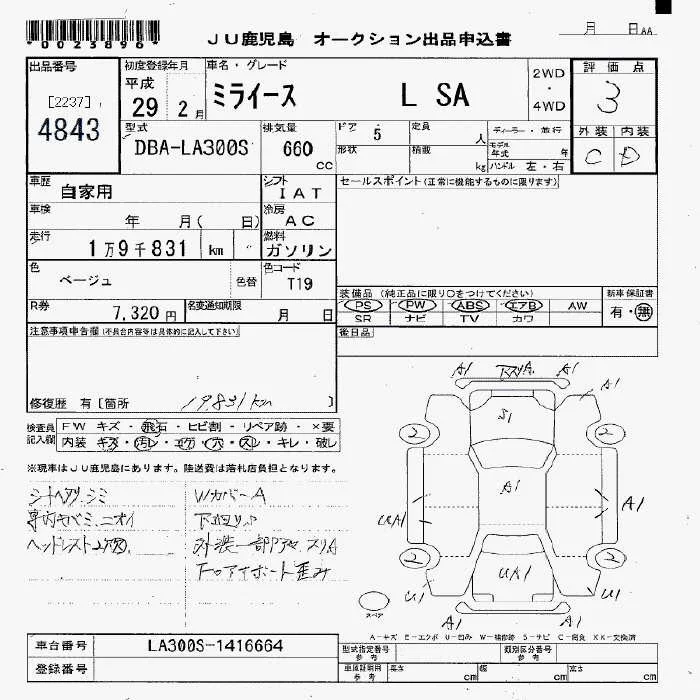 *0023896*
JU鹿児島 オークション出品申込書
月 日 AA
出品番号
[2237]
4843
初度登録年月
平成
29 2月
車名・グレード
ミライース L SA
2WD
・
4WD
評価点
3
外装 内装
C D
型式
DBA-LA300S
排気量
660
cc
ドア 5
定員 人
形状
積載 kg
ディーラー・並行
モデル年式 年
ハンドル 左・右
車歴
自家用
シフト
IAT
セールスポイント(正常に機能するものに限ります)
車検
年 月( 日)
冷房
AC
走行
1万9千831 km
燃料
ガソリン
色
ベージュ
色替
色コード
T19
R券
7,320 円
名変通知期限
月 日
装備品 (純正品に限り○をつけてください)
PS PW ABS エアB AW
SR ナビ TV カワ
新車保証書
有・無
後日品
注意事項申告欄(不具合内容等は具体的に記入して下さい)
修復歴 有[箇所 19831km ]
検査員
記入欄
FW キズ・飛石・ヒビ割・リペア跡・×要
内装 キズ・汚レ・コゲ・穴・スレ・キレ・破レ
※現車はJU鹿児島にあります。陸送費は落札店負担となります。
シートヘタリ.シミ
車内ヤバミ.ニオイ
ヘッドレスト
WカバーA
下廻リ
外装一部
歪み
A1
A1
A1
A1
S1
2
2
A1
A1
UA1
2
2
UA1
U1
U1
A1
A1
スペア
A-キズ E-エクボ U-凹み W-補修跡 S-サビ C-腐食 XX-交換済
車台番号
LA300S-1416664
登録番号
型式指定番号
参考
類別区分番号
参考
車検証明用
参考
長さ cm
幅 cm
高さ cm